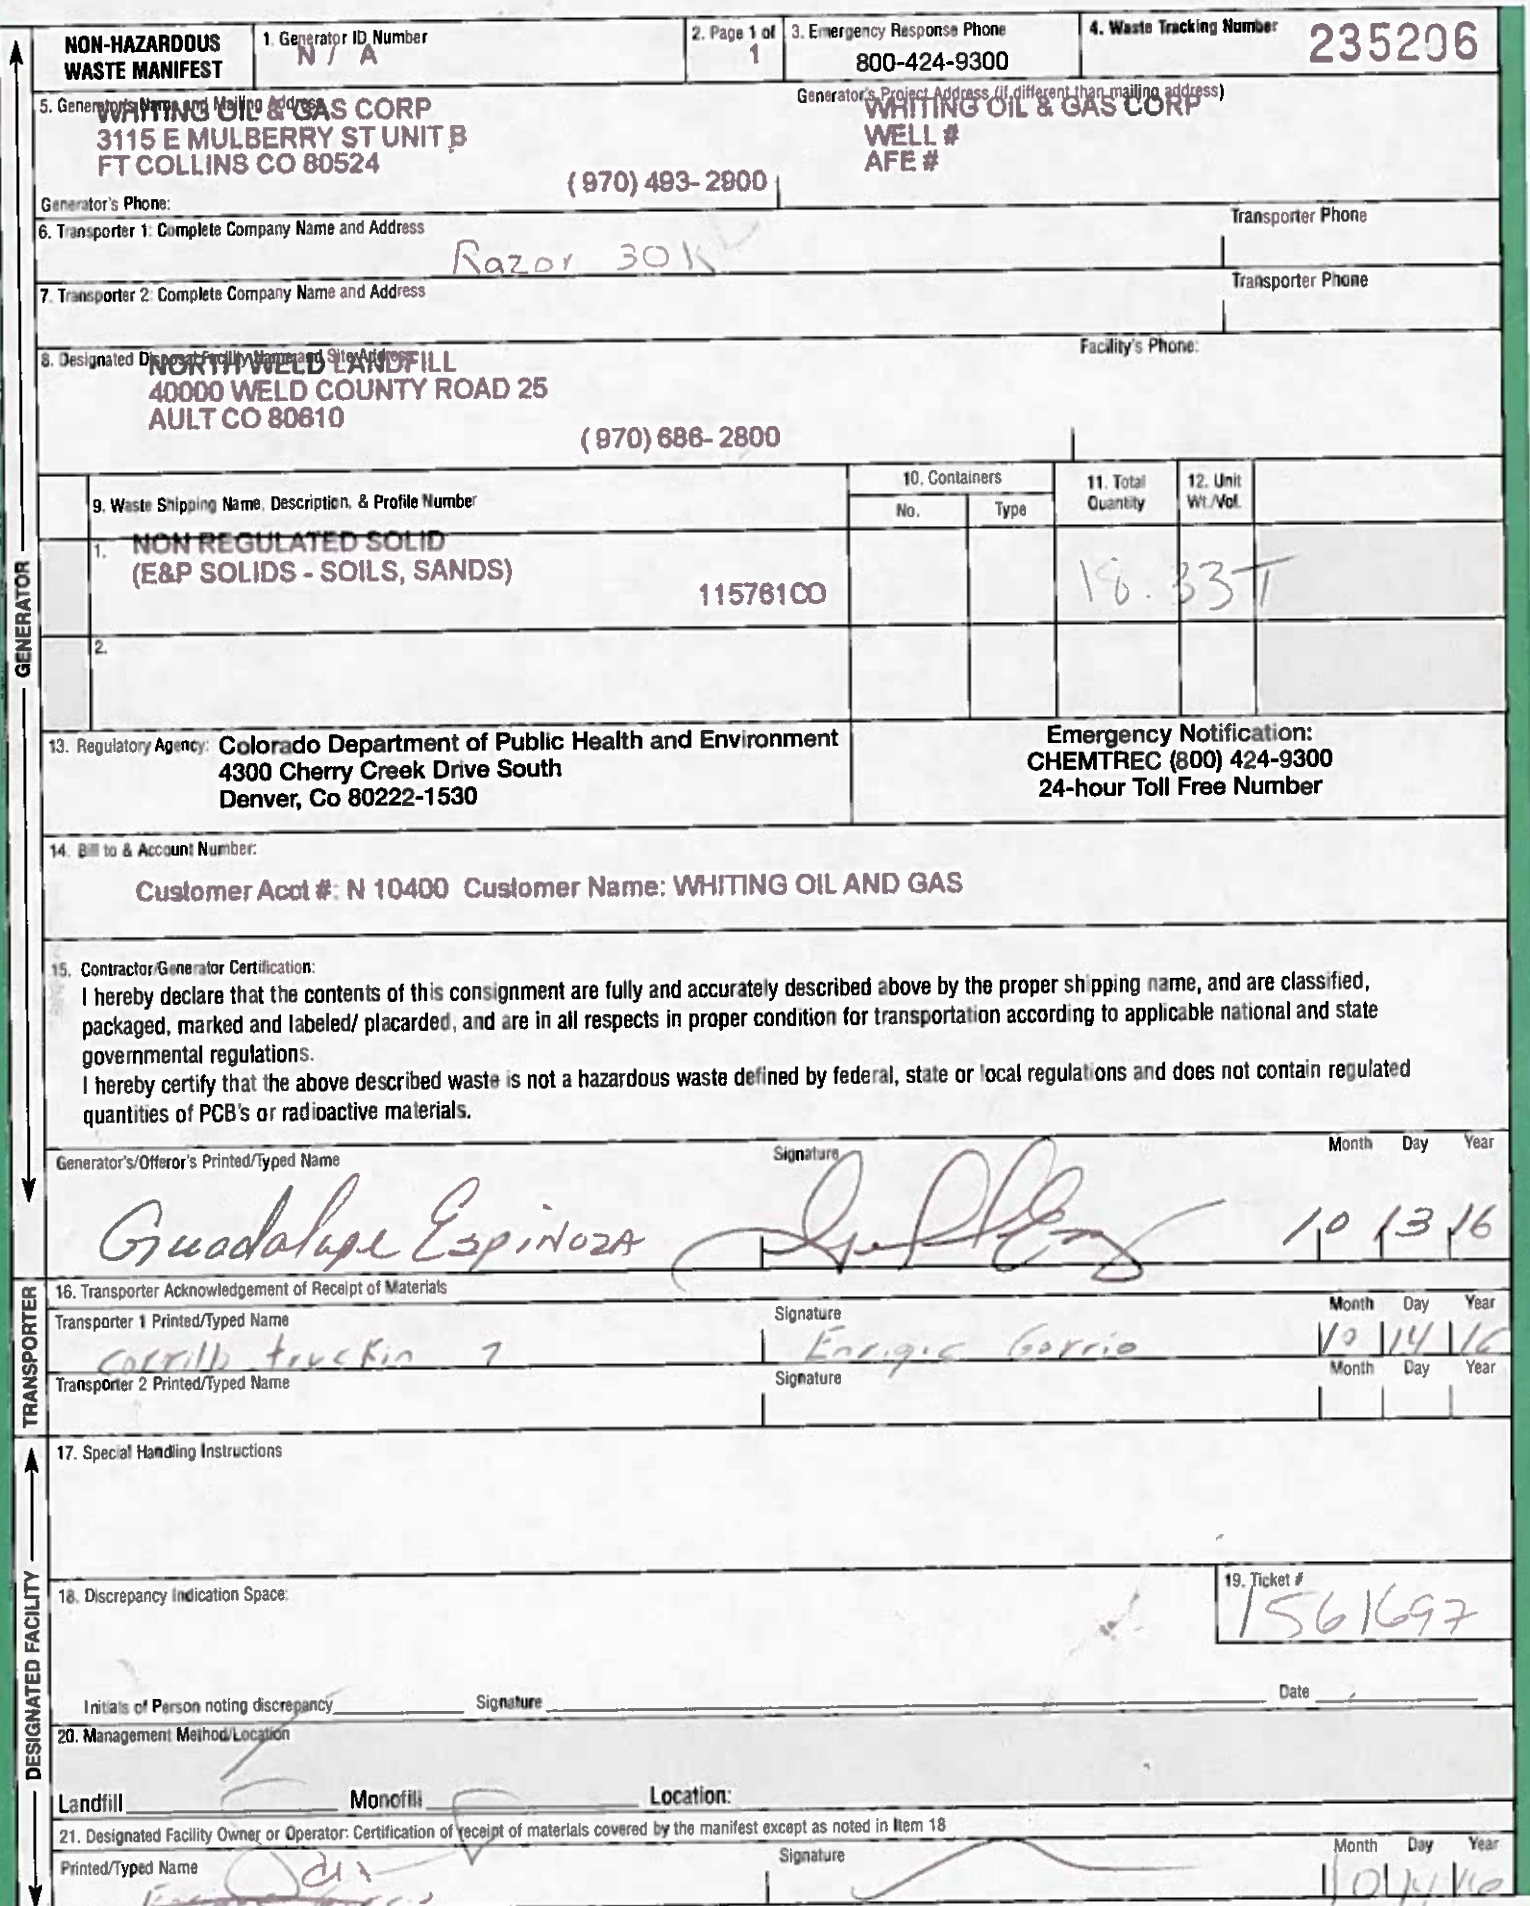 NON-HAZARDOUS WASTE MANIFEST
1. Generator ID Number
N / A
2. Page 1 of
1
3. Emergency Response Phone
800-424-9300
4. Waste Tracking Number
235206
5. Generator's Name and Mailing Address
WHITING OIL & GAS CORP
3115 E MULBERRY ST UNIT B
FT COLLINS CO 80524
(970) 493-2900
Generator's Phone:
Generator's Project Address (if different than mailing address)
WHITING OIL & GAS CORP
WELL #
AFE #
6. Transporter 1: Complete Company Name and Address
Razor 30K
Transporter Phone
7. Transporter 2: Complete Company Name and Address
Transporter Phone
8. Designated Disposal Facility Name and Site Address
NORTH WELD LANDFILL
40000 WELD COUNTY ROAD 25
AULT CO 80610
(970) 686-2800
Facility's Phone:
9. Waste Shipping Name, Description, & Profile Number
10. Containers
No.
Type
11. Total Quantity
12. Unit Wt./Vol.
1. NON REGULATED SOLID
(E&P SOLIDS - SOILS, SANDS)
115761CO
18.33T
2.
13. Regulatory Agency: Colorado Department of Public Health and Environment
4300 Cherry Creek Drive South
Denver, Co 80222-1530
Emergency Notification:
CHEMTREC (800) 424-9300
24-hour Toll Free Number
14. Bill to & Account Number:
Customer Acct #: N 10400 Customer Name: WHITING OIL AND GAS
15. Contractor/Generator Certification:
I hereby declare that the contents of this consignment are fully and accurately described above by the proper shipping name, and are classified,
packaged, marked and labeled/ placarded, and are in all respects in proper condition for transportation according to applicable national and state
governmental regulations.
I hereby certify that the above described waste is not a hazardous waste defined by federal, state or local regulations and does not contain regulated
quantities of PCB's or radioactive materials.
Generator's/Offeror's Printed/Typed Name
Signature
Month Day Year
Guadalupe Espinoza
10 13 16
16. Transporter Acknowledgement of Receipt of Materials
Transporter 1 Printed/Typed Name
Signature
Month Day Year
Enrique
10 14 16
Transporter 2 Printed/Typed Name
Signature
Month Day Year
17. Special Handling Instructions
18. Discrepancy Indication Space:
19. Ticket #
1561697
Initials of Person noting discrepancy
Signature
Date
20. Management Method/Location
Landfill
Monofill
Location:
21. Designated Facility Owner or Operator: Certification of receipt of materials covered by the manifest except as noted in Item 18
Printed/Typed Name
Signature
Month Day Year
GENERATOR
TRANSPORTER
DESIGNATED FACILITY